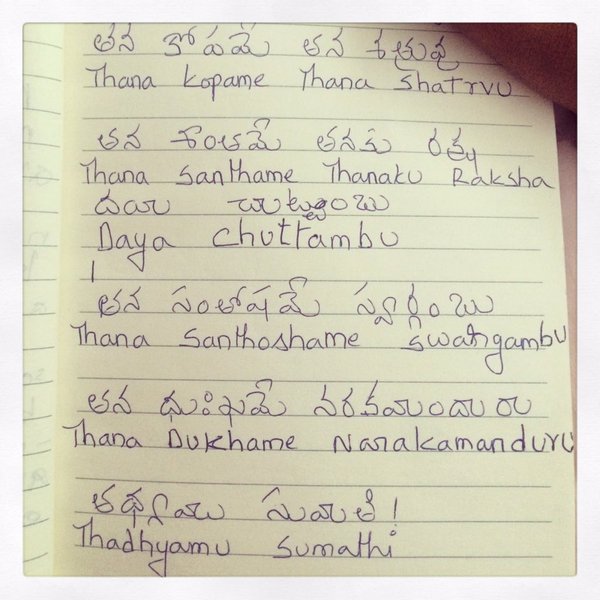 తన కోపమే తన శత్రువు
Thana Kopame Thana Shatrvu
తన శాంతమే తనకు రక్ష
Thana Santhame Thanaku Raksha
దయ చుట్టంబు
Daya Chuttambu
తన సంతోషమే స్వర్గంబు
Thana Santhoshame Swargambu
తన ధుఃఖమే నరకమందురు
Thana Dukhame Narakamanduru
తథ్యము సుమతి!
Thadhyamu Sumathi